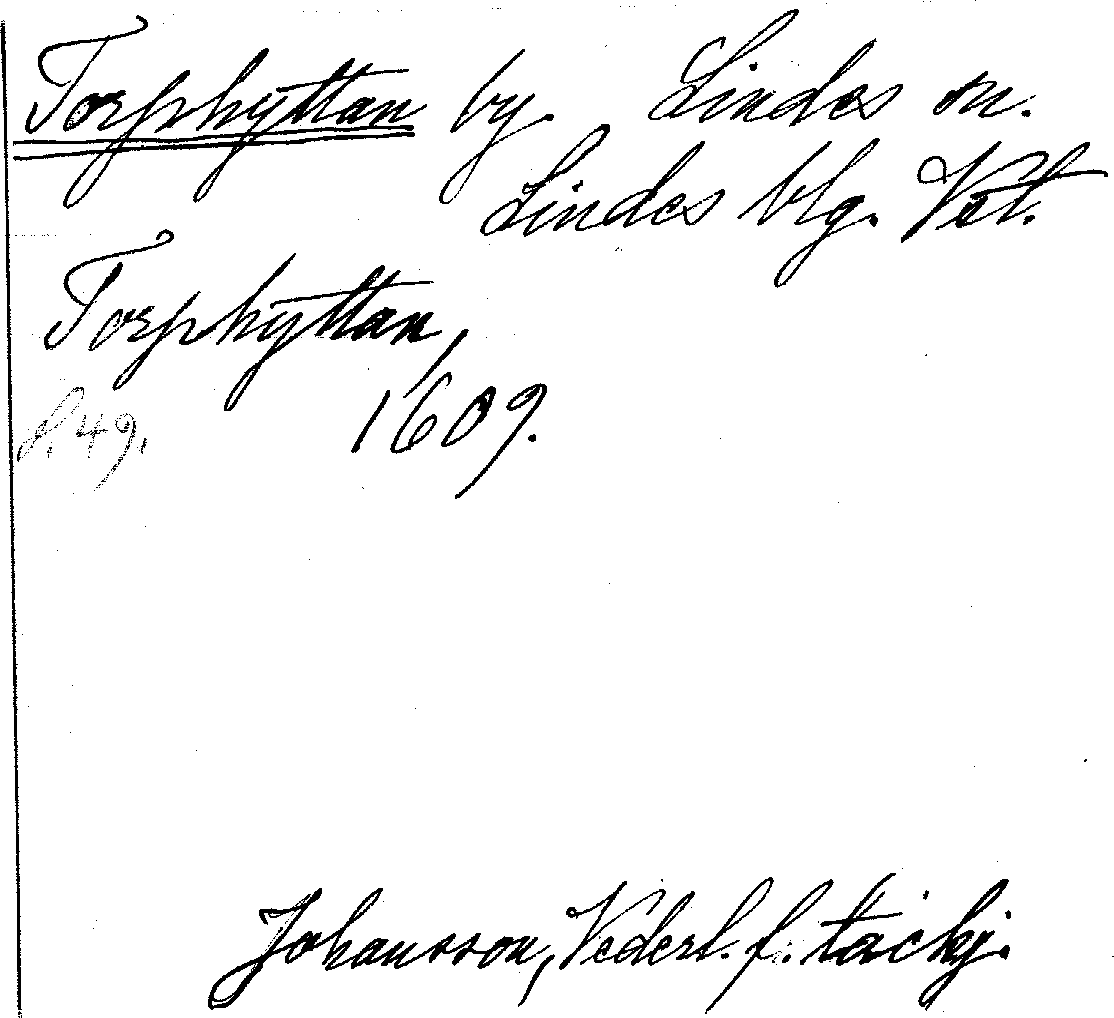 Torphyttan by. Lindes sn.
Lindes blg. Vstl.
Torphyttan,
s. 49. 1609.
Johansson, Vederl. f. tackj.